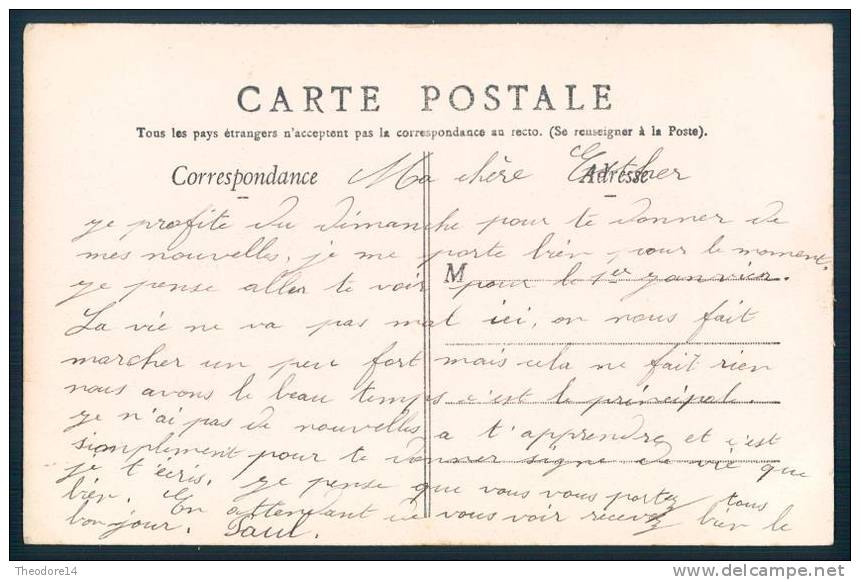 CARTE POSTALE
Tous les pays étrangers n'acceptent pas la correspondance au recto. (Se renseigner à la Poste).
Correspondance Ma chère Esther Adresse
je profite du dimanche pour te donner de
mes nouvelles, je me porte bien pour le moment.
M
je pense aller te voir pour le 1er janvier.
La vie ne va pas mal ici, on nous fait
marcher un peu fort mais cela ne fait rien
nous avons le beau temps c'est le principale.
je n'ai pas de nouvelles a t'apprendre et c'est
simplement pour te donner signe de vie que
je t'écris. je pense que vous vous portez tous
bien. En attendant de vous voir recevez bien le
bonjour. Paul.
Theodore14
delcampe.net